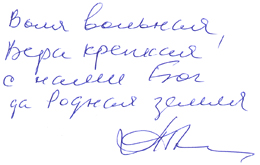 Воля вольная,
Вера крепкая,
с нами Бог
да Родная земля